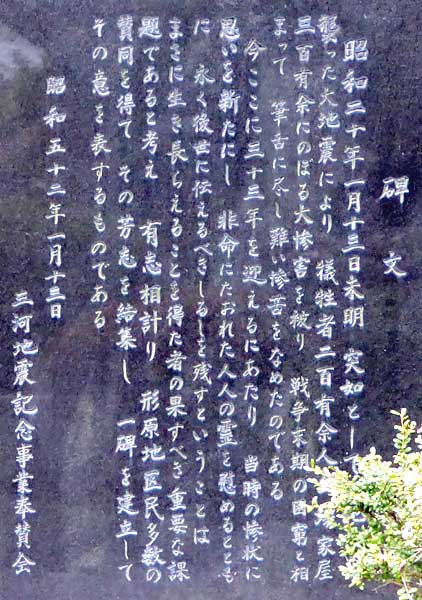 碑文
昭和二十年一月十三日未明 突如として
襲った大地震により 犠牲者二百有余人 家屋
三百有余にのぼる大惨害を被り 戦争末期の困窮と相
まって 筆舌に尽し難い惨苦をなめたのである
今ここに三十三年を迎えるにあたり 当時の惨状に
思いを新たにし 非命にたおれた人人の霊を慰めるととも
に 永く後世に伝えるべきしるしを残すということは
まさに生き長らえることを得た者の果すべき重要な課
題であると考え 有志相計り 形原地区民多数の
賛同を得て その芳志を結集し 一碑を建立して
その意を表するものである
昭和五十二年一月十三日
三河地震記念事業奉賛会